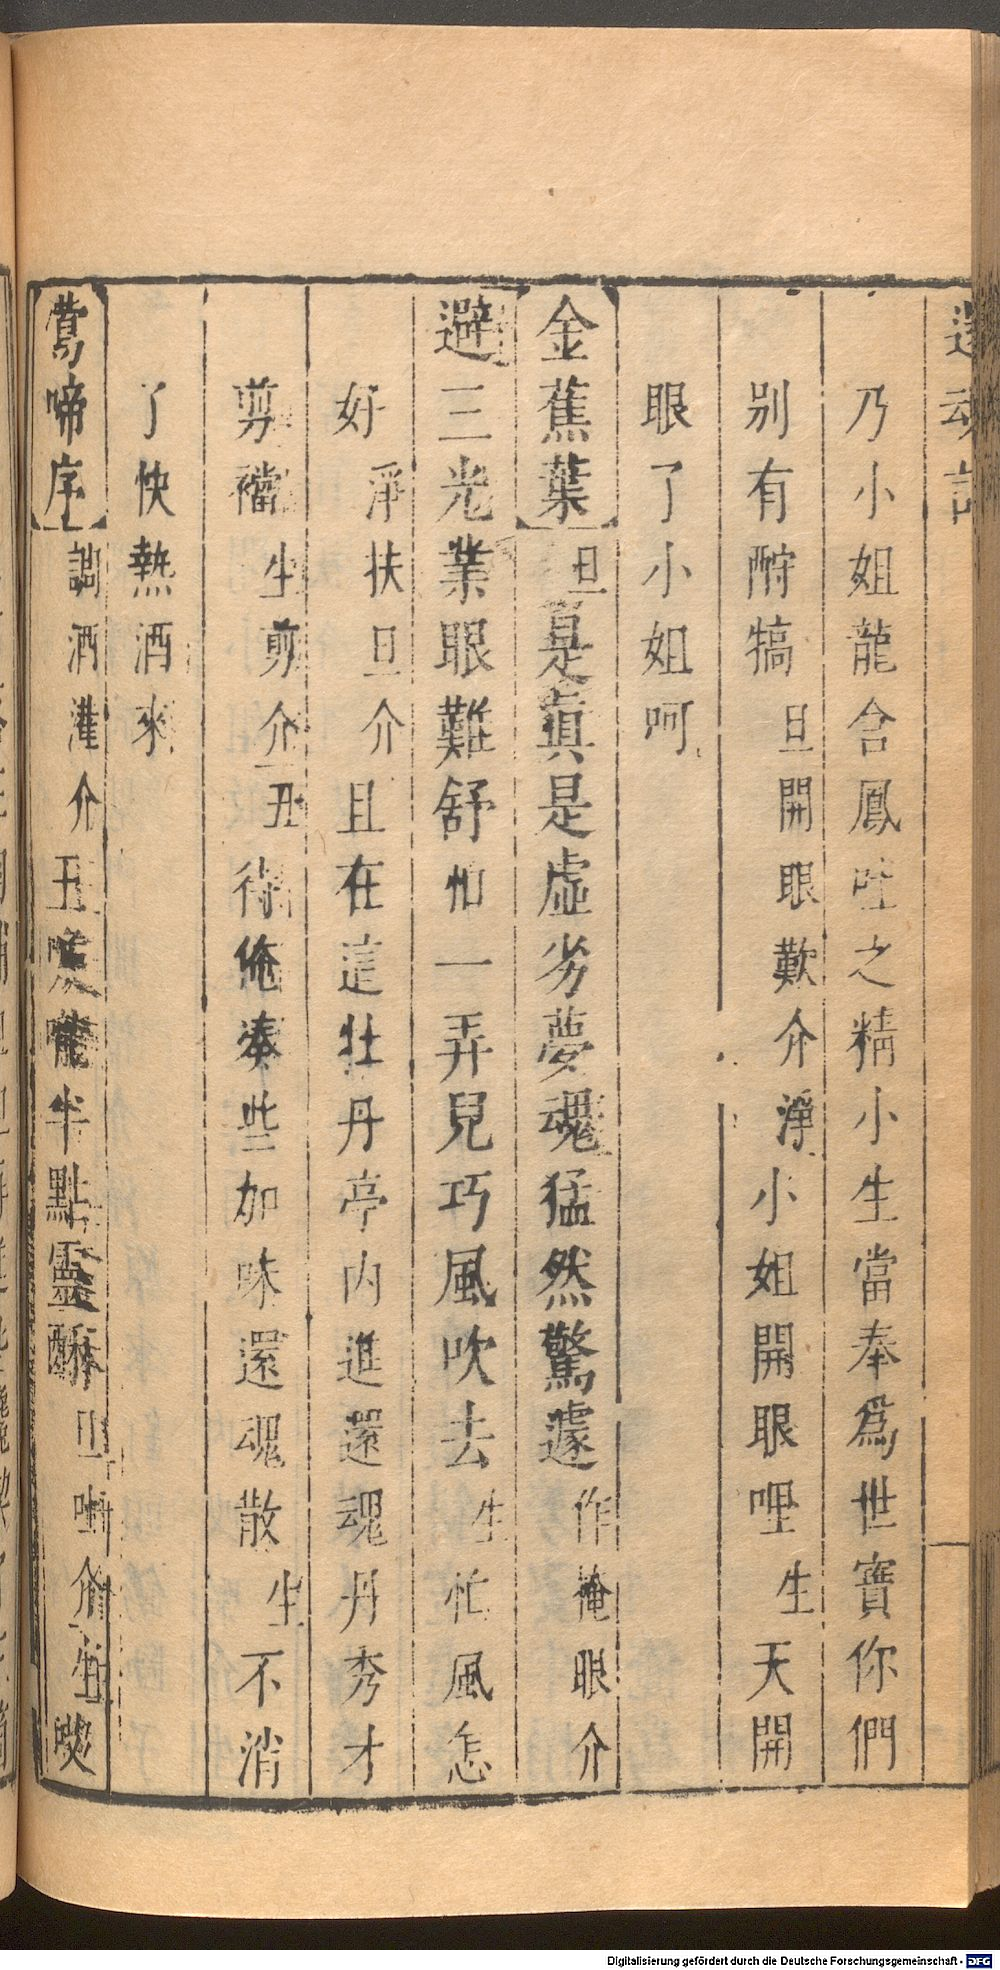 還魂記
乃小姐龍含鳳吐之精小生當奉爲世寶你們
別有酧犒旦開眼歎介淨小姐開眼哩生天開
眼了小姐呵
金蕉葉旦是真是虛劣夢魂猛然驚遽作掩眼介
避三光業眼難舒怕一弄兒巧風吹去生忙風怎
好淨扶旦介且在這牡丹亭內進還魂丹秀才
剪襠生剪介丑待俺湊些加味還魂散生不消
了快熱酒來
鶯啼序調酒灌介丑喉嚨半點靈酥旦哺介生
Digitalisierung gefördert durch die Deutsche Forschungsgemeinschaft - DFG